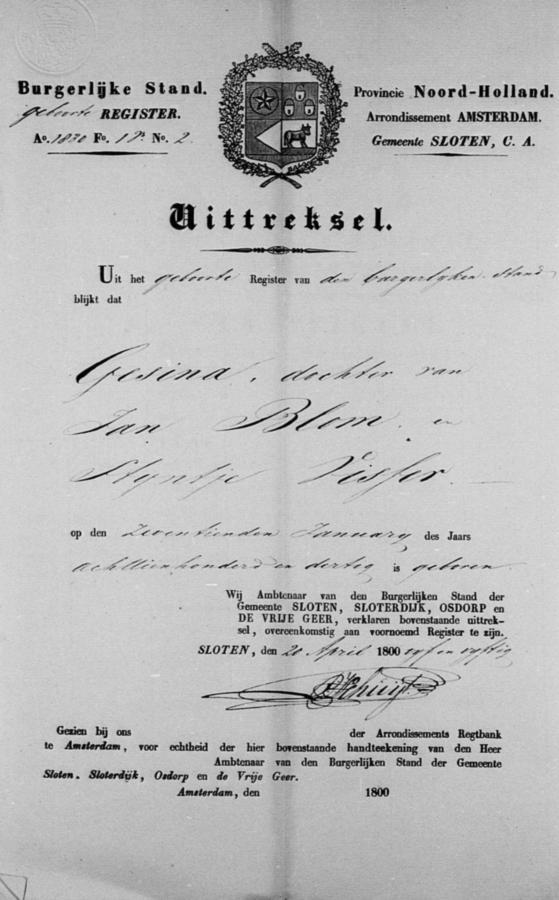 Burgerlijke Stand.
geboorte REGISTER.
Ao. 1830 Fo. 1 Vo. No. 2
Provincie Noord-Holland.
Arrondissement AMSTERDAM.
Gemeente SLOTEN, C. A.
Uittreksel.
Uit het geboorte Register van den burgerlyken stand
blijkt dat
Gesina, dochter van
Jan Blom en
Styntje Visser.
op den Zeventienden January des Jaars
achttienhonderd en dertig is geboren.
Wij Ambtenaar van den Burgerlijken Stand der
Gemeente SLOTEN, SLOTERDIJK, OSDORP en
DE VRIJE GEER, verklaren bovenstaande uittrek-
sel, overeenkomstig aan voornoemd Register te zijn.
SLOTEN, den 20 April 1800 vyf en vyftig
Gezien bij ons der Arrondissements Regtbank
te Amsterdam, voor echtheid der hier bovenstaande handteekening van den Heer
Ambtenaar van den Burgerlijken Stand der Gemeente
Sloten. Sloterdijk, Osdorp en de Vrije Geer.
Amsterdam, den 1800